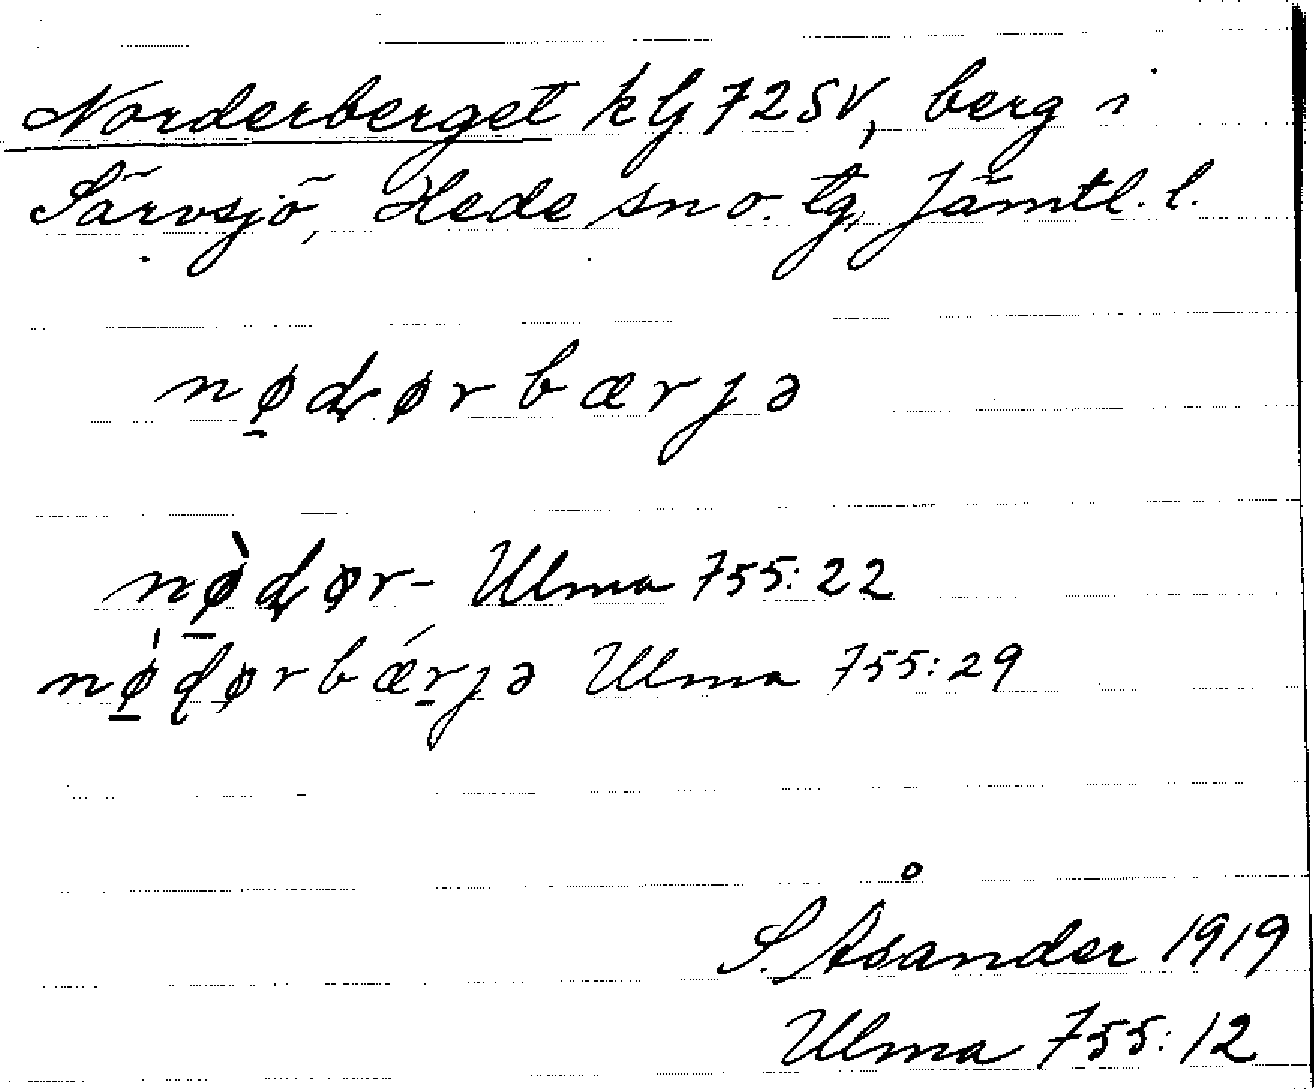 Norderberget kbg 72SV, berg i
Särvsjö, Hede sn o. tg, Jämtl. l.
nø̠ɖørbærjə
nø̠̀ɖør- Ulma 755:22
nø̠̀ɖørbǽr̠jə Ulma 755:29
S. Åsander 1919
Ulma 755:12